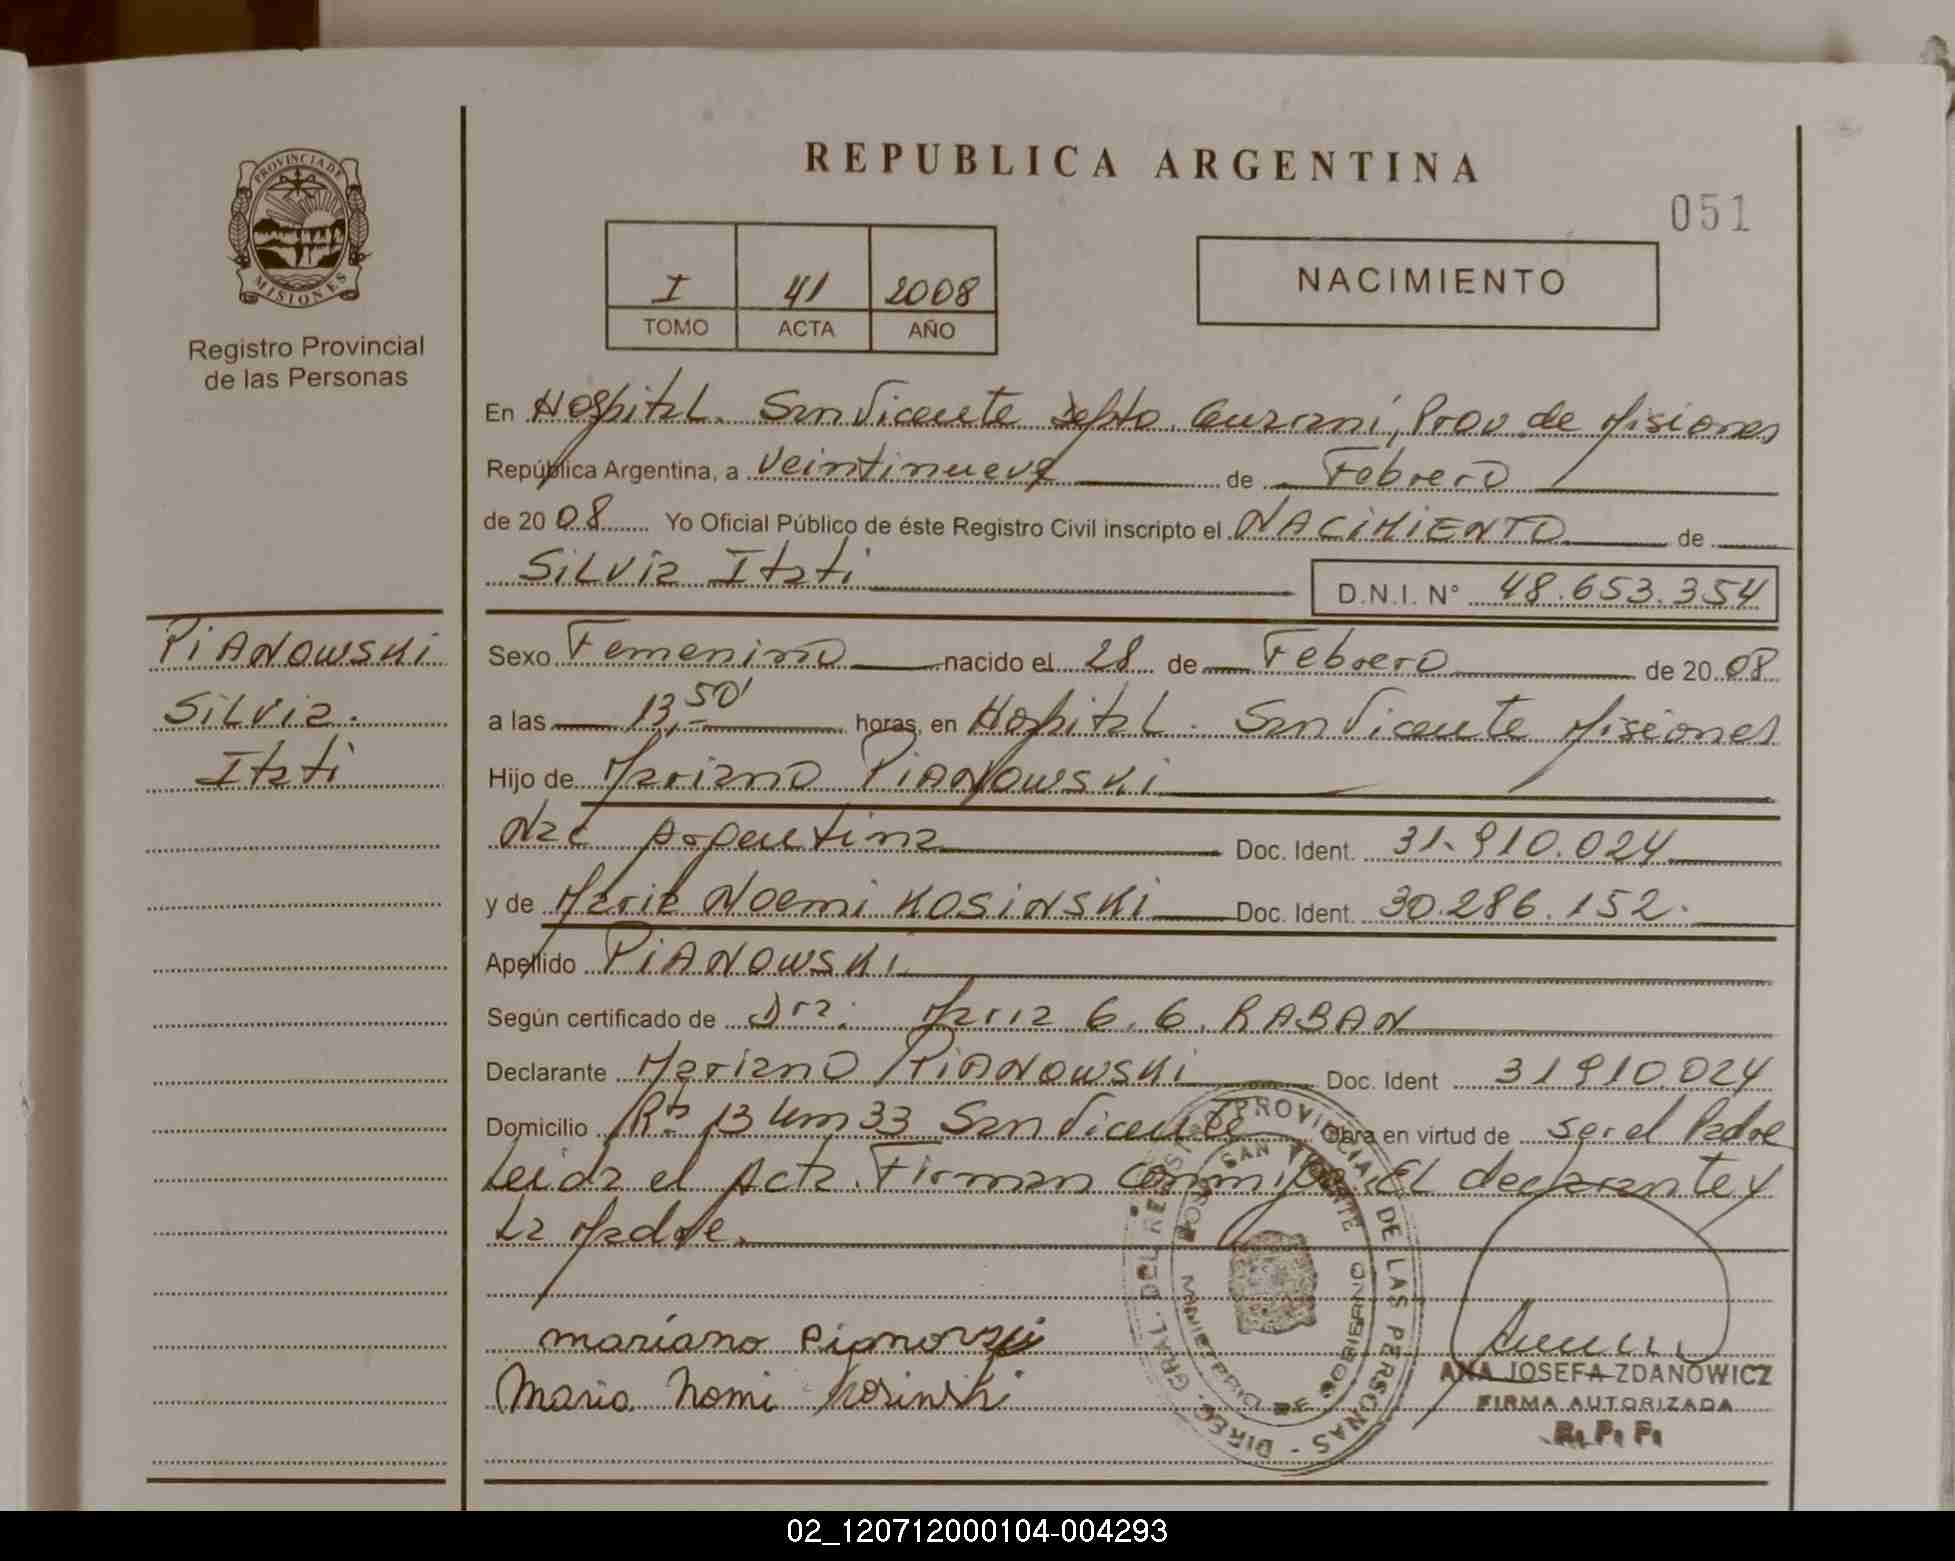 REPUBLICA ARGENTINA
051
PROVINCIA DE
MISIONES
Registro Provincial
de las Personas
I 41 2008
TOMO ACTA AÑO
NACIMIENTO
En Hospital. San Vicente Depto. Guarani, Prov de Misiones
República Argentina, a Veintinueve de Febrero
de 20 08 Yo Oficial Público de éste Registro Civil inscripto el NACIMIENTO de
Silvia Itati D.N.I. N° 48.653.354
PIANOWSKI
Silvia.
Itati
Sexo Femenino nacido el 28 de Febrero de 20 08
a las 13,50' horas, en Hospital. San Vicente Misiones
Hijo de Mariano PIANOWSKI
Nac Argentina Doc. Ident. 31.910.024
y de Maria Noemi KOSINSKI Doc. Ident. 30.286.152.
Apellido PIANOWSKI
Según certificado de Dra. Maria G. G. RABAN
Declarante Mariano PIANOWSKI Doc. Ident 31910.024
Domicilio Rta 13 Km 33 San Vicente Obra en virtud de ser el Padre
Leida el Acta. Firman conmigo. El declarante y
La Madre.
mariano Pianovski
Maria Nomi Kosinski
DIREC. GRAL. DEL REGISTRO PROVINCIAL DE LAS PERSONAS
SAN VICENTE
MINISTERIO DE GOBIERNO
ANA JOSEFA ZDANOWICZ
FIRMA AUTORIZADA
R. P. P.
02_120712000104-004293